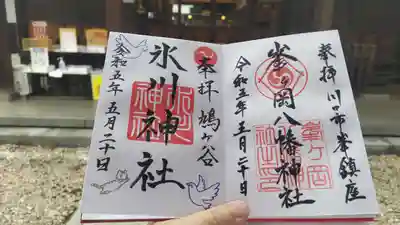 奉拝 川口市峯鎮座
峯ヶ岡八幡神社
令和五年五月二十日
奉拝 鳩ヶ谷
氷川神社
令和五年五月二十日